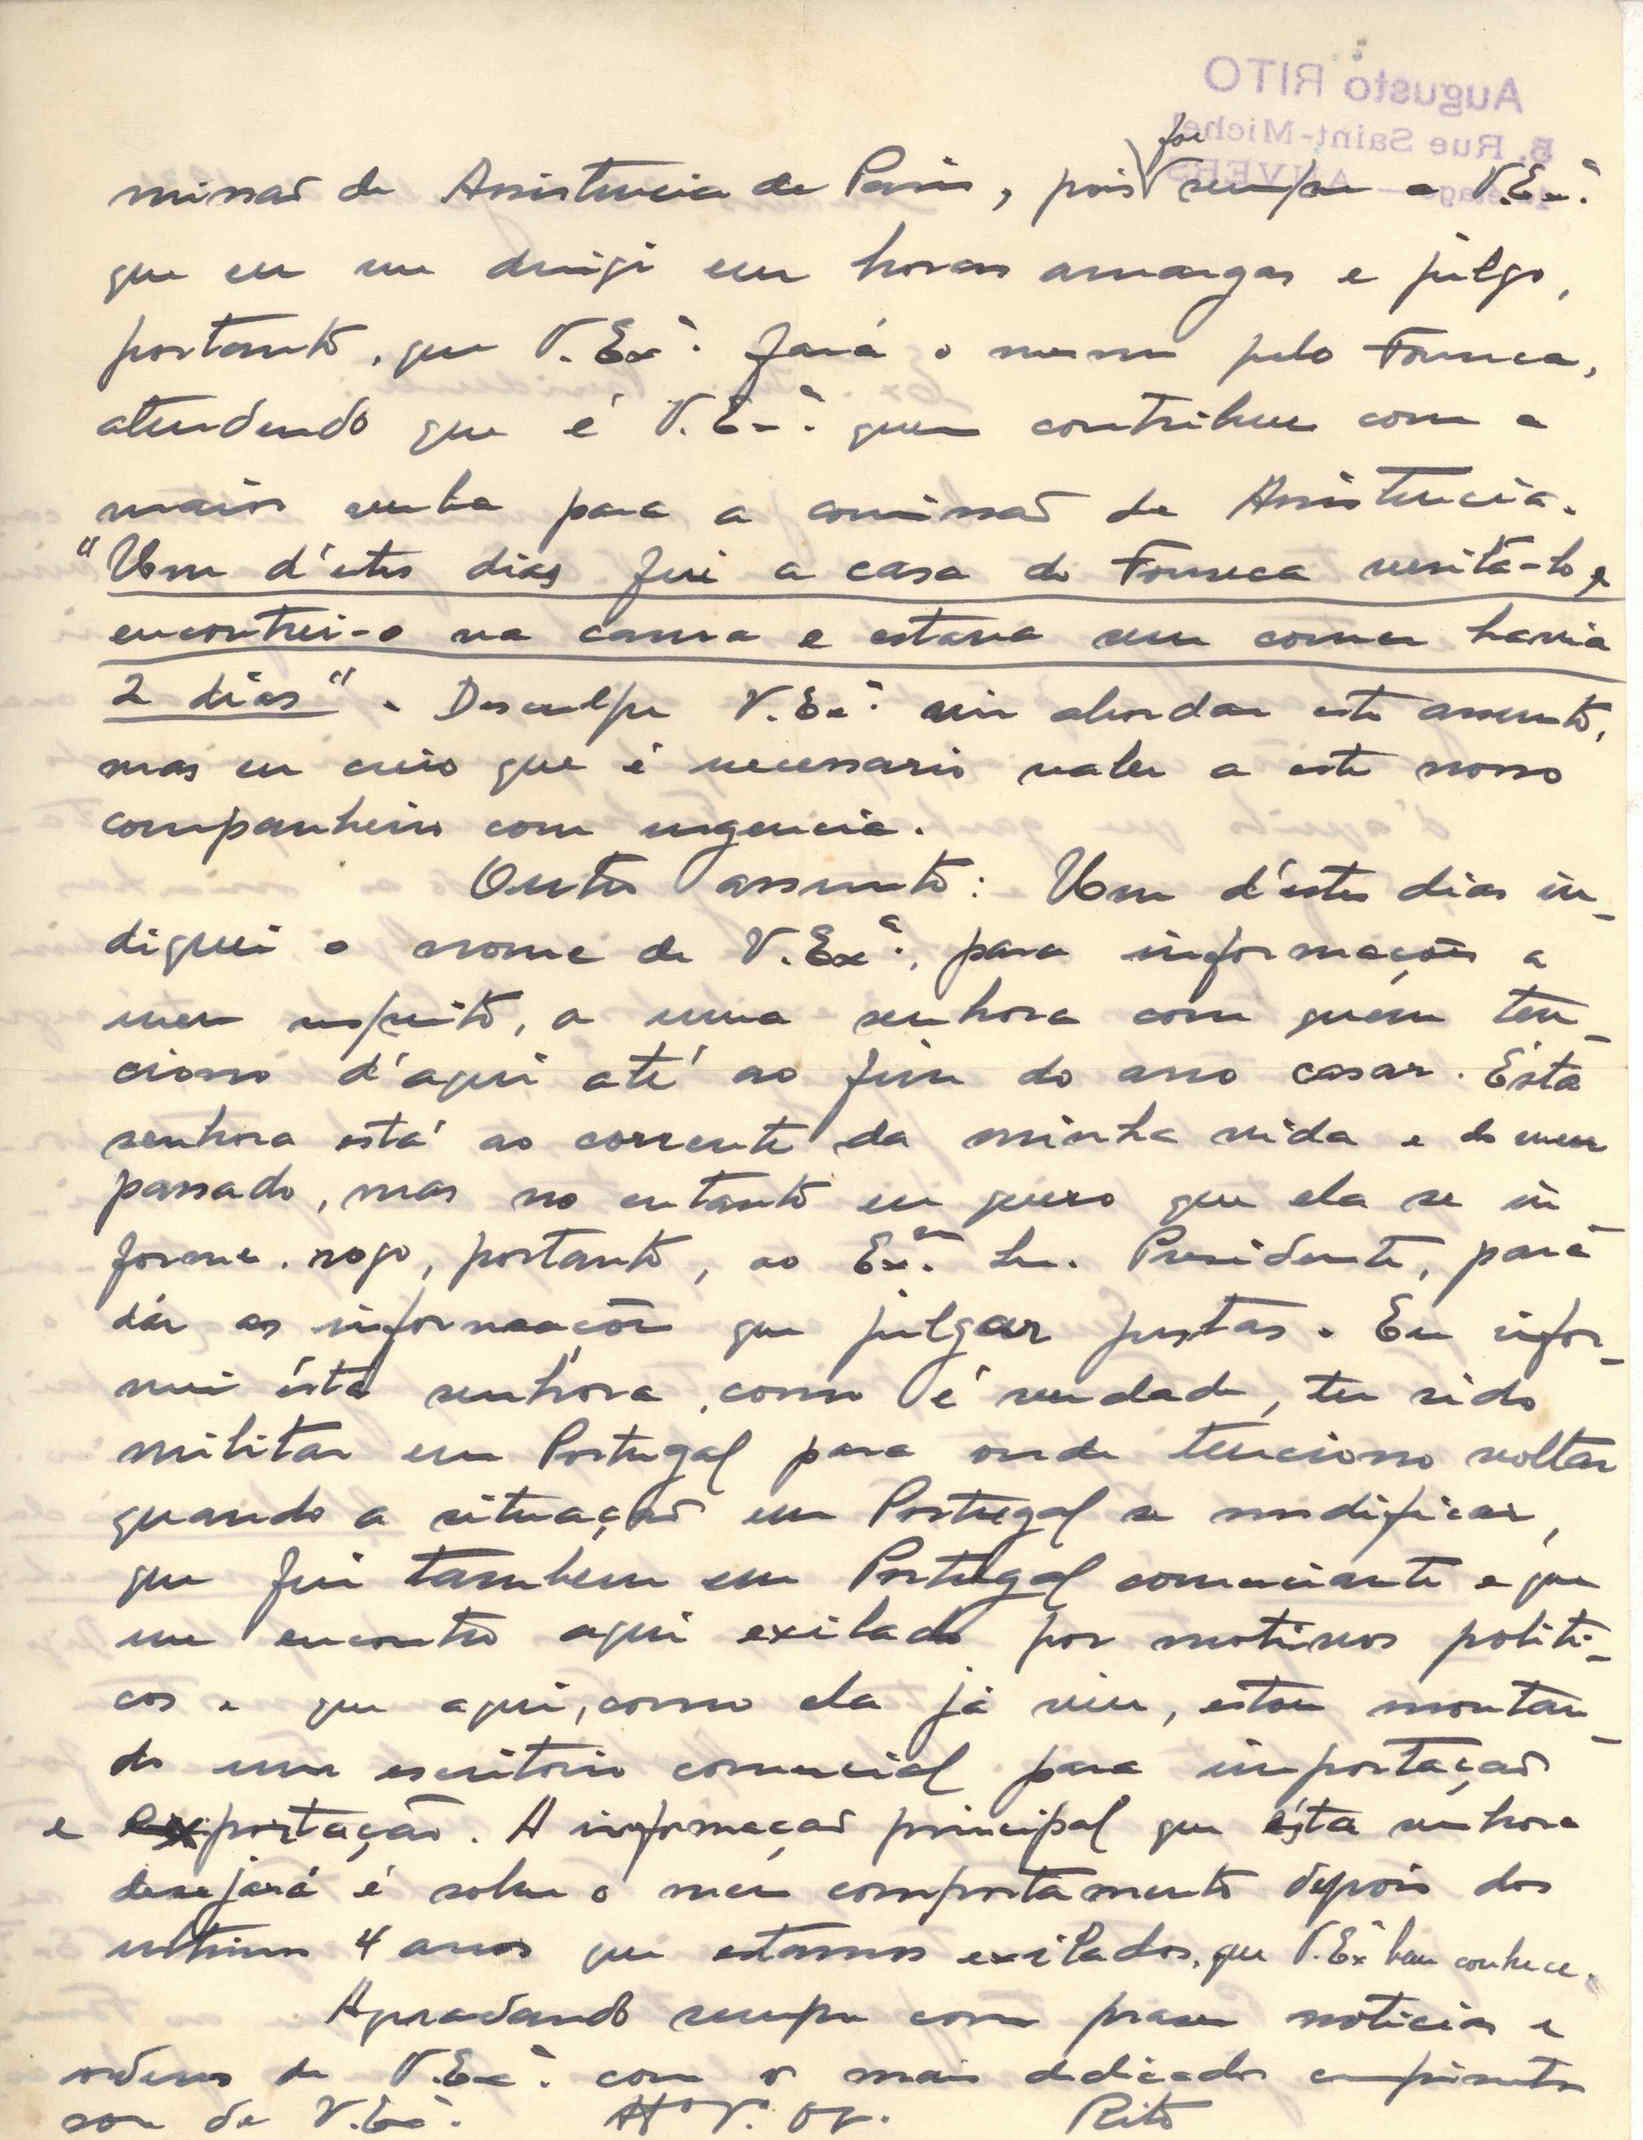 Augusto RITO
B, Rue Saint-Michel
ANVERS
foi
missão de Assistencia de Paris, pois sempre a V.Exª.
que eu me dirigi em horas amargas e julgo,
portanto, que V.Exª. fará o mesmo pelo Fonseca,
atendendo que é V.Exª. quem contribue com a
maior verba para a comissão de Assistencia.
"Um d'estes dias fui a casa do Fonseca visitá-lo e
encontrei-o na cama e estava sem comer havia
2 dias". Desculpe V.Exª. vir abordar este assunto,
mas eu creio que é necessario valer a este nosso
companheiro com urgencia.
Outro assunto: Um d'estes dias in-
diquei o nome de V.Exª., para informações a
meu respeito, a uma senhora com quem ten-
ciono d'aqui até ao fim do ano casar. Ésta
senhora está ao corrente da minha vida e do meu
passado, mas no entanto eu quero que ela se in-
forme. rogo, portanto, ao Exmº. Snr. Presidente, para
dár as informações que julgar justas. Eu infor-
mei ésta senhora, como é verdade, ter sido
militar em Portugal para onde tenciono voltar
quando a situação em Portugal se modificar,
que fui tambem em Portugal comerciante e que
me encontro aqui exilado por motivos politi-
cos e que aqui, como ela já viu, estou montan-
do um escritorio comercial para importação
e exportação. A informação principal que ésta senhora
desejará é sobre o meu comportamento depois dos
ultimos 4 anos que estamos exilados, que V.Exª bem conhece.
Agradando sempre com prazer noticias e
ordens de V.Exª. com o mais dedicado cumprimento
sou de V.Exª. Rito